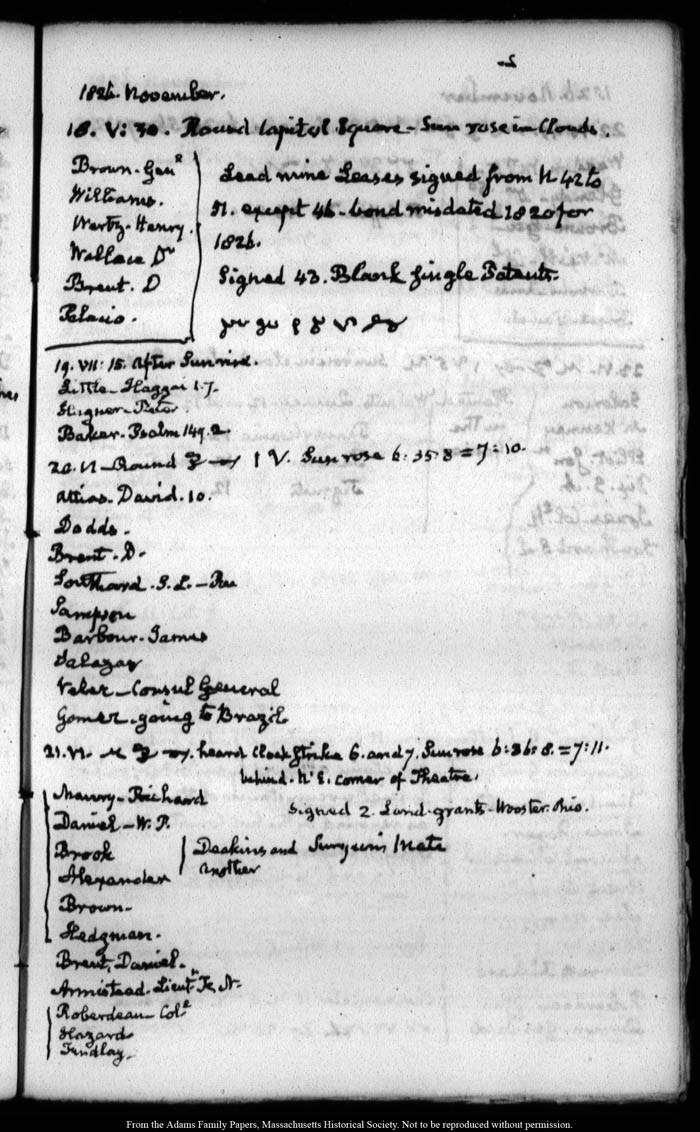 1826. November.
18. V: 30. Round Capitol Square - Sun rose in Clouds.
Brown - Genl
Williams.
Wertz - Henry.
Wallace Dr
Brent. D
Palacio.
Lead mine Leases signed from N 42 to
51. except 46 - bond misdated 1820 for
1826.
Signed 43. Blank single Patents.
19. VII: 15. After Sunrise.
Little - Haggai 1.7.
Hagner - Peter.
Baker - Psalm 149.2
20. VI - Round V. Sun rose 6:35:8 = 7:10.
Attias. David. 10.
Dodds.
Brent. D.
Southard. S. L. -
Sampson
Barbour. James
Salazar
Velez - Consul General
Gomez - going to Brazil
21. VI. heard Clock Strike 6. and 7. Sun rose 6:36:8. = 7:11.
behind. N.E. corner of Theatre.
Maury - Richard
Daniel - W. P.
Brook
Alexander
Brown.
Hedgman.
Signed 2. Land grants - Wooster. Ohio.
Deakins and
another
Brent, Daniel.
Armistead. Lieut
Roberdeau - Coll
Hazard
Findlay.
From the Adams Family Papers, Massachusetts Historical Society. Not to be reproduced without permission.